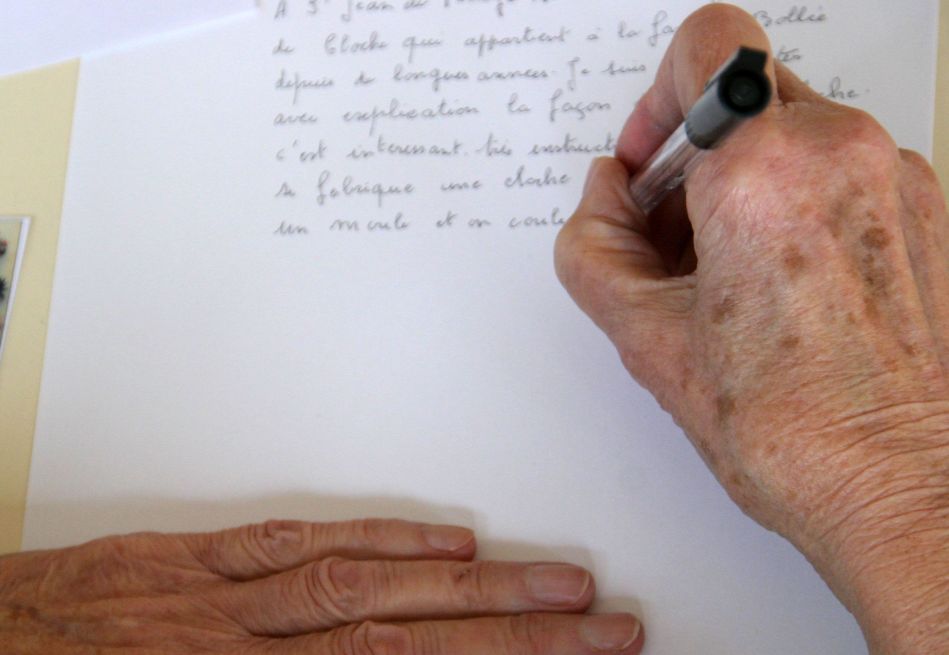 A St Jean de
de Cloche qui appartient à la fa Bollée
depuis de longues années. Je suis
avec explication la façon che.
c'est interessant. très instruct
se fabrique une cloche
un moule et on coule